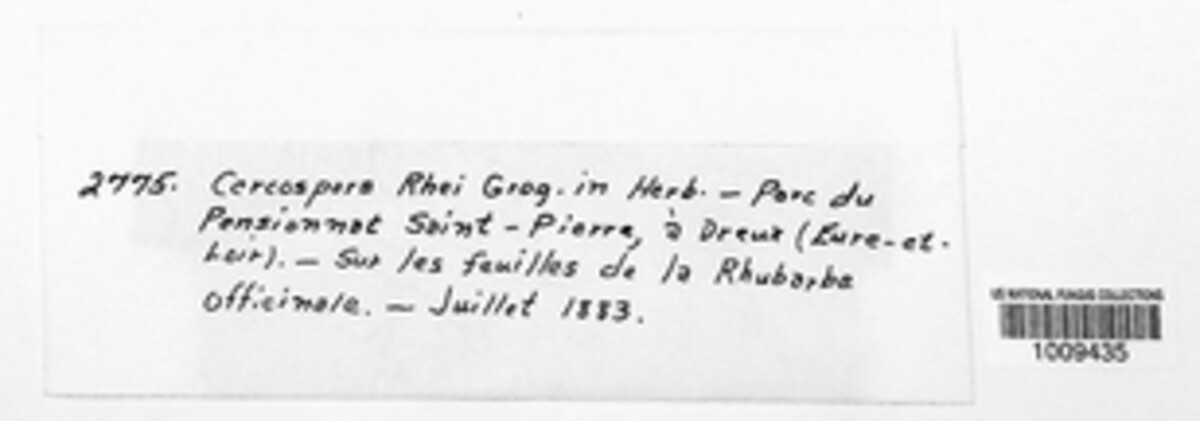 2775. Cercospora Rhei Grog. in Herb. — Parc du
Pensionnat Saint-Pierre, à Dreux (Eure-et-
Loir). — Sur les feuilles de la Rhubarbe
officinale. — Juillet 1883.
US NATIONAL FUNGUS COLLECTIONS
1009435